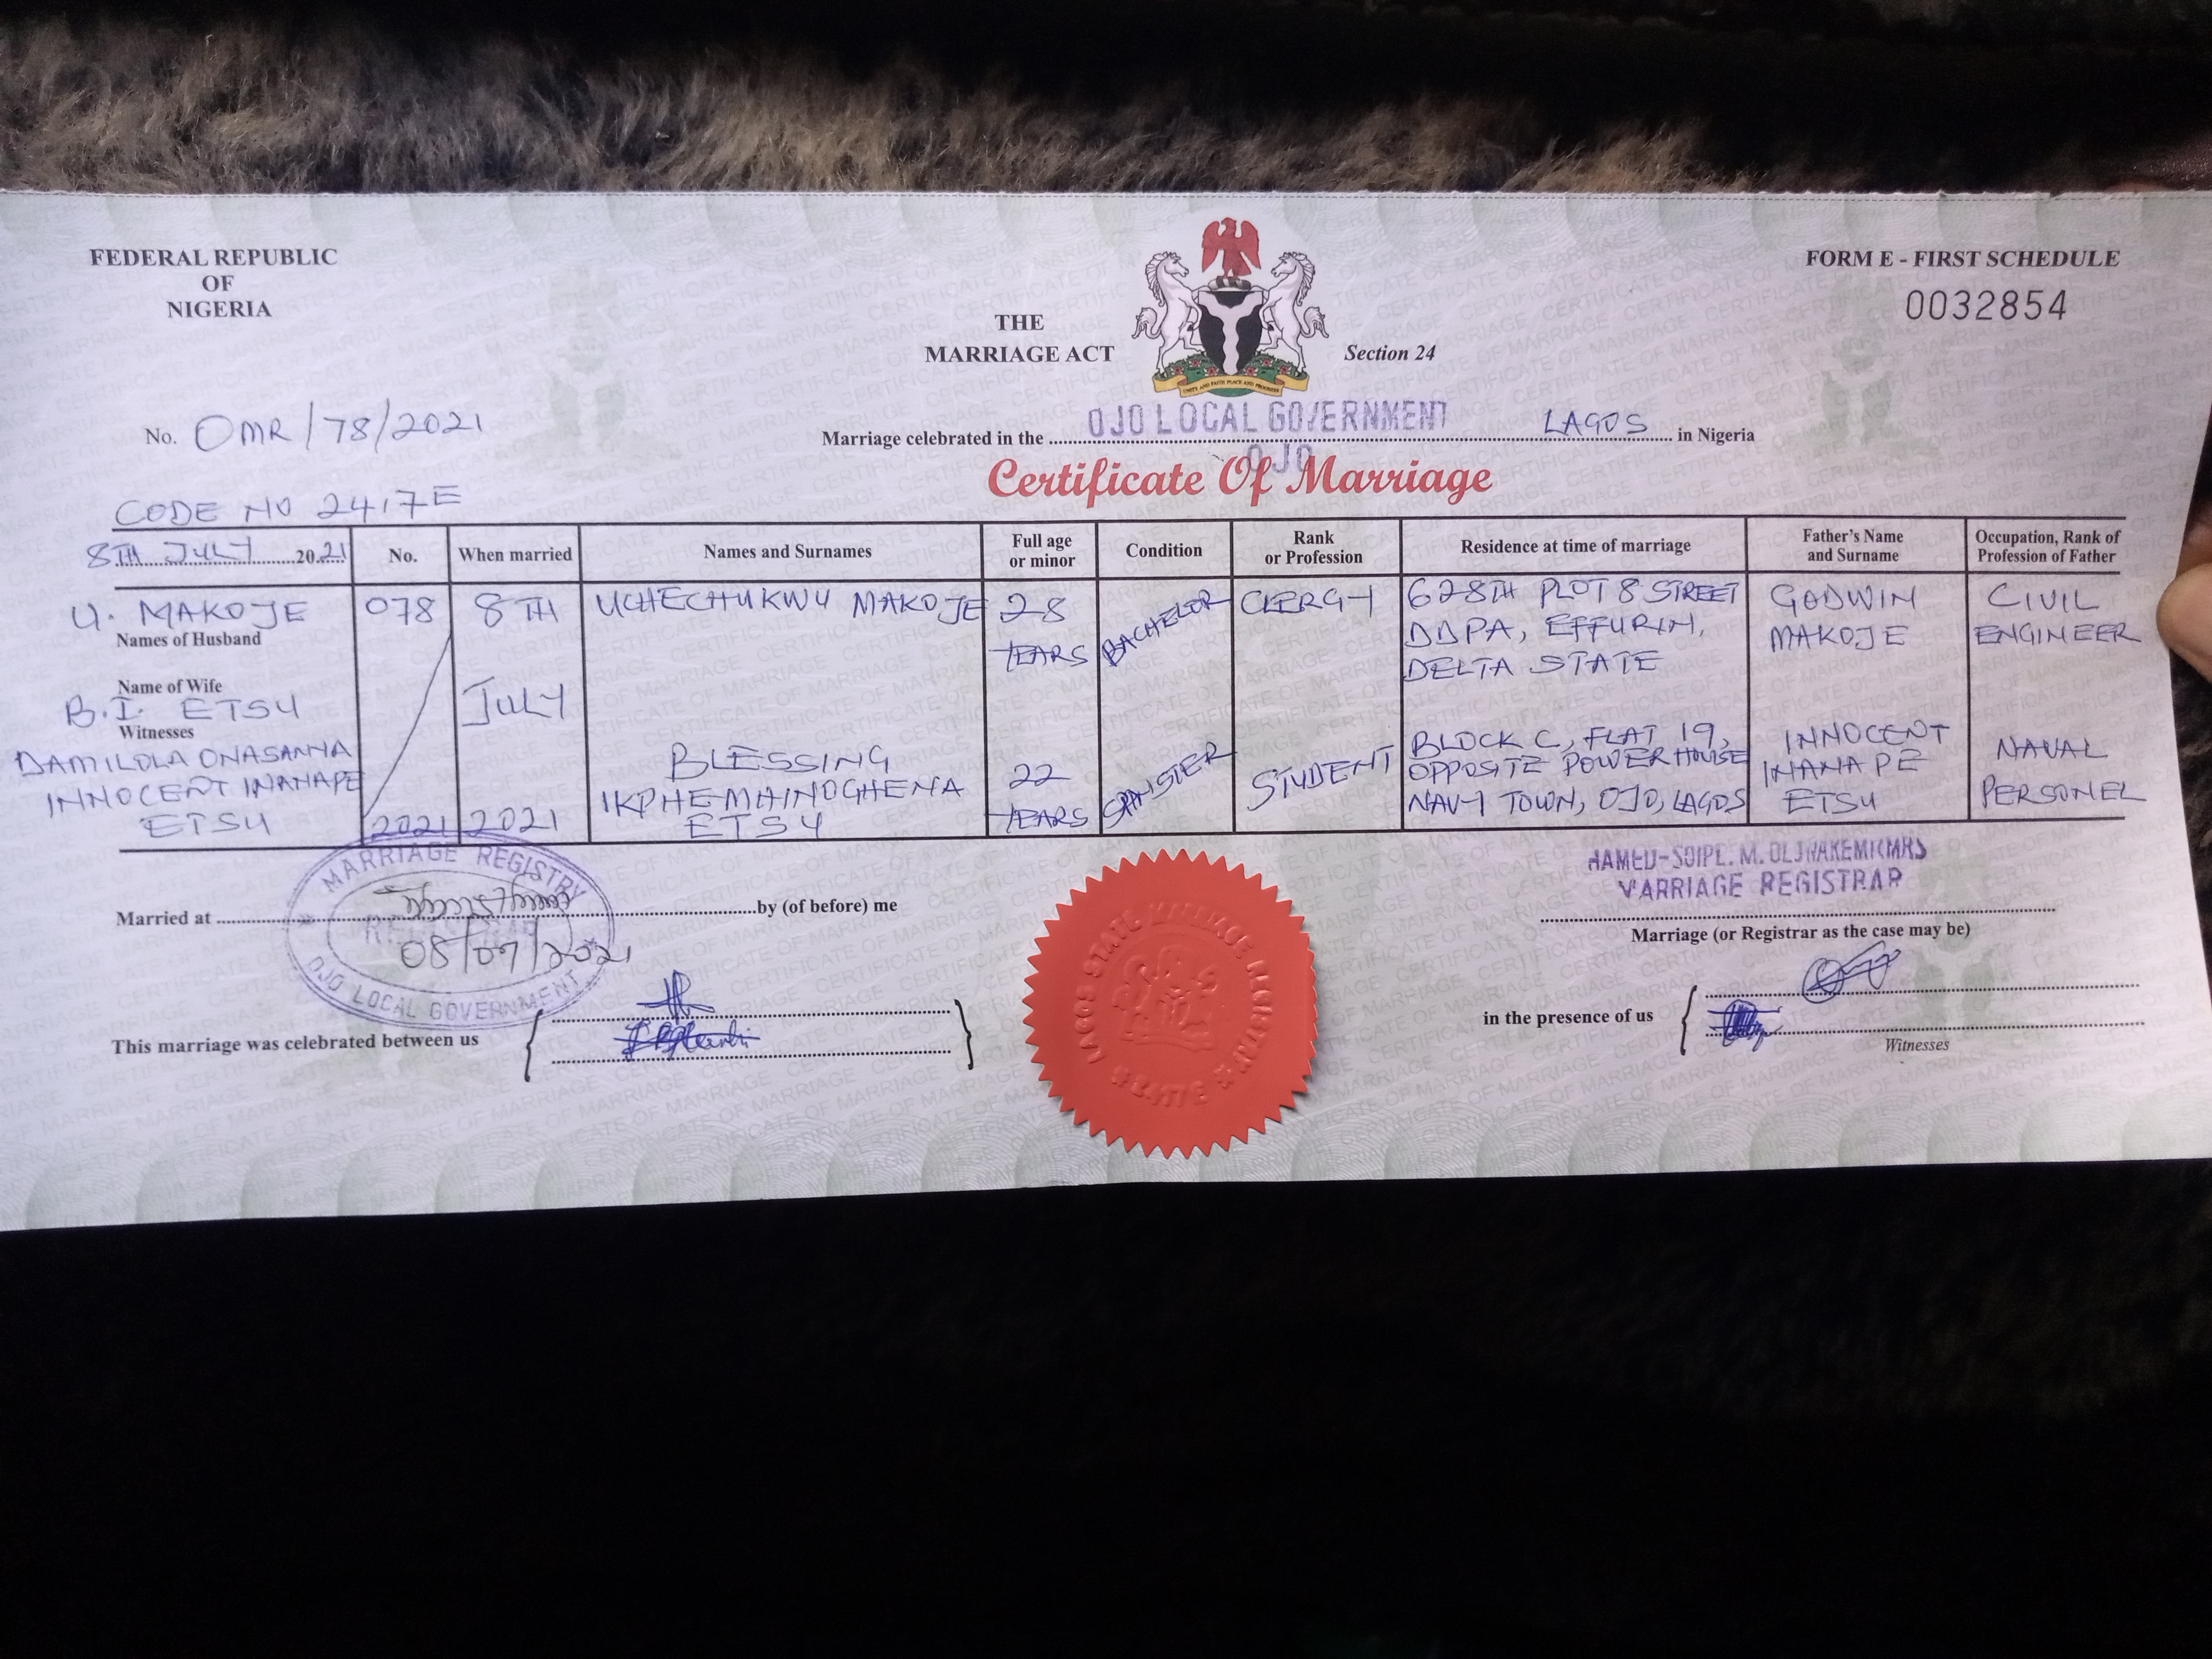 FEDERAL REPUBLIC
OF
NIGERIA
THE
MARRIAGE ACT
Section 24
FORM E - FIRST SCHEDULE
0032854
UNITY AND FAITH PEACE AND PROGRESS
No. OMR/78/2021
Marriage celebrated in the OJO LOCAL GOVERNMENT LAGOS in Nigeria
OJO
Certificate Of Marriage
CODE NO 2417E
8TH JULY 2021
No.
When married
Names and Surnames
Full age
or minor
Condition
Rank
or Profession
Residence at time of marriage
Father's Name
and Surname
Occupation, Rank of
Profession of Father
U. MAKOJE
Names of Husband
078
8TH
UCHECHUKWU MAKOJE
28
YEARS
BACHELOR
CLERGY
628TH PLOT 8 STREET
DDPA, EFFURIN,
DELTA STATE
GODWIN
MAKOJE
CIVIL
ENGINEER
Name of Wife
B.I. ETSU
JULY
Witnesses
DAMILOLA ONASANYA
INNOCENT INANAPE
ETSU
2021
2021
BLESSING
IKPHEMHINOGHENA
ETSU
22
YEARS
SPINSTER
STUDENT
BLOCK C, FLAT 19,
OPPOSITE POWER HOUSE
NAVY TOWN, OJO, LAGOS
INNOCENT
INANAPE
ETSU
NAVAL
PERSONEL
MARRIAGE REGISTRY
REGISTRAR
OJO LOCAL GOVERNMENT
Married at
08/07/2021
by (of before) me
MARRIAGE REGISTRAR
Marriage (or Registrar as the case may be)
This marriage was celebrated between us
LAGOS STATE MARRIAGE REGISTRY
in the presence of us
Witnesses